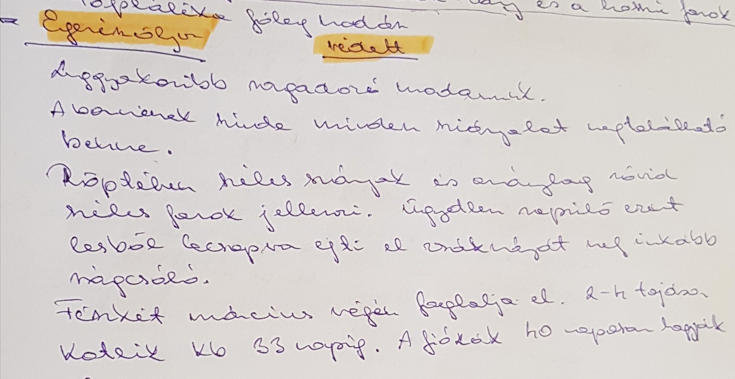 Tápláléka főleg madár
és a hosszú farok
- Egerészölyv védett
Leggyakoribb ragadozó madarunk.
A barnának szinte minden árnyalat megtalálható
benne.
Röptében széles szárnyak és aránylag rövid
széles farok jellemzi. Ügyetlen repülő ezért
lesből lecsapva ejti el zsákmányát leginkább
rágcsáló.
Fészkét március végén foglalja el. 2-4 tojáson
kotlik kb 33 napig. A fiókák 40 naposan hagyják